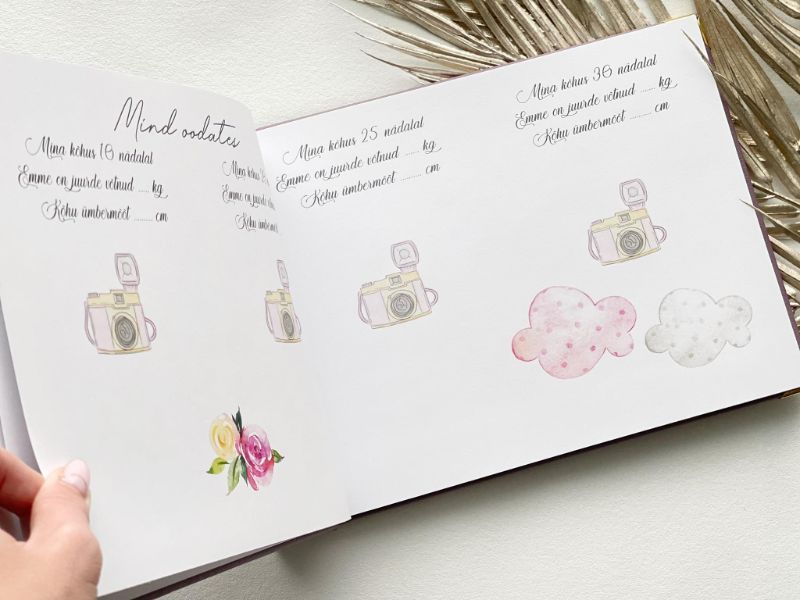 Mind oodates
Mina kõhus 10 nädalal
Emme on juurde võtnud ..... kg
Kõhu ümbermõõt ......... cm
Mina kõhus
Emme on juurde võtnud
Kõhu ümbermõõt
Mina kõhus 25 nädalal
Emme on juurde võtnud ...... kg
Kõhu ümbermõõt .......... cm
Mina kõhus 36 nädalal
Emme on juurde võtnud ...... kg
Kõhu ümbermõõt .......... cm